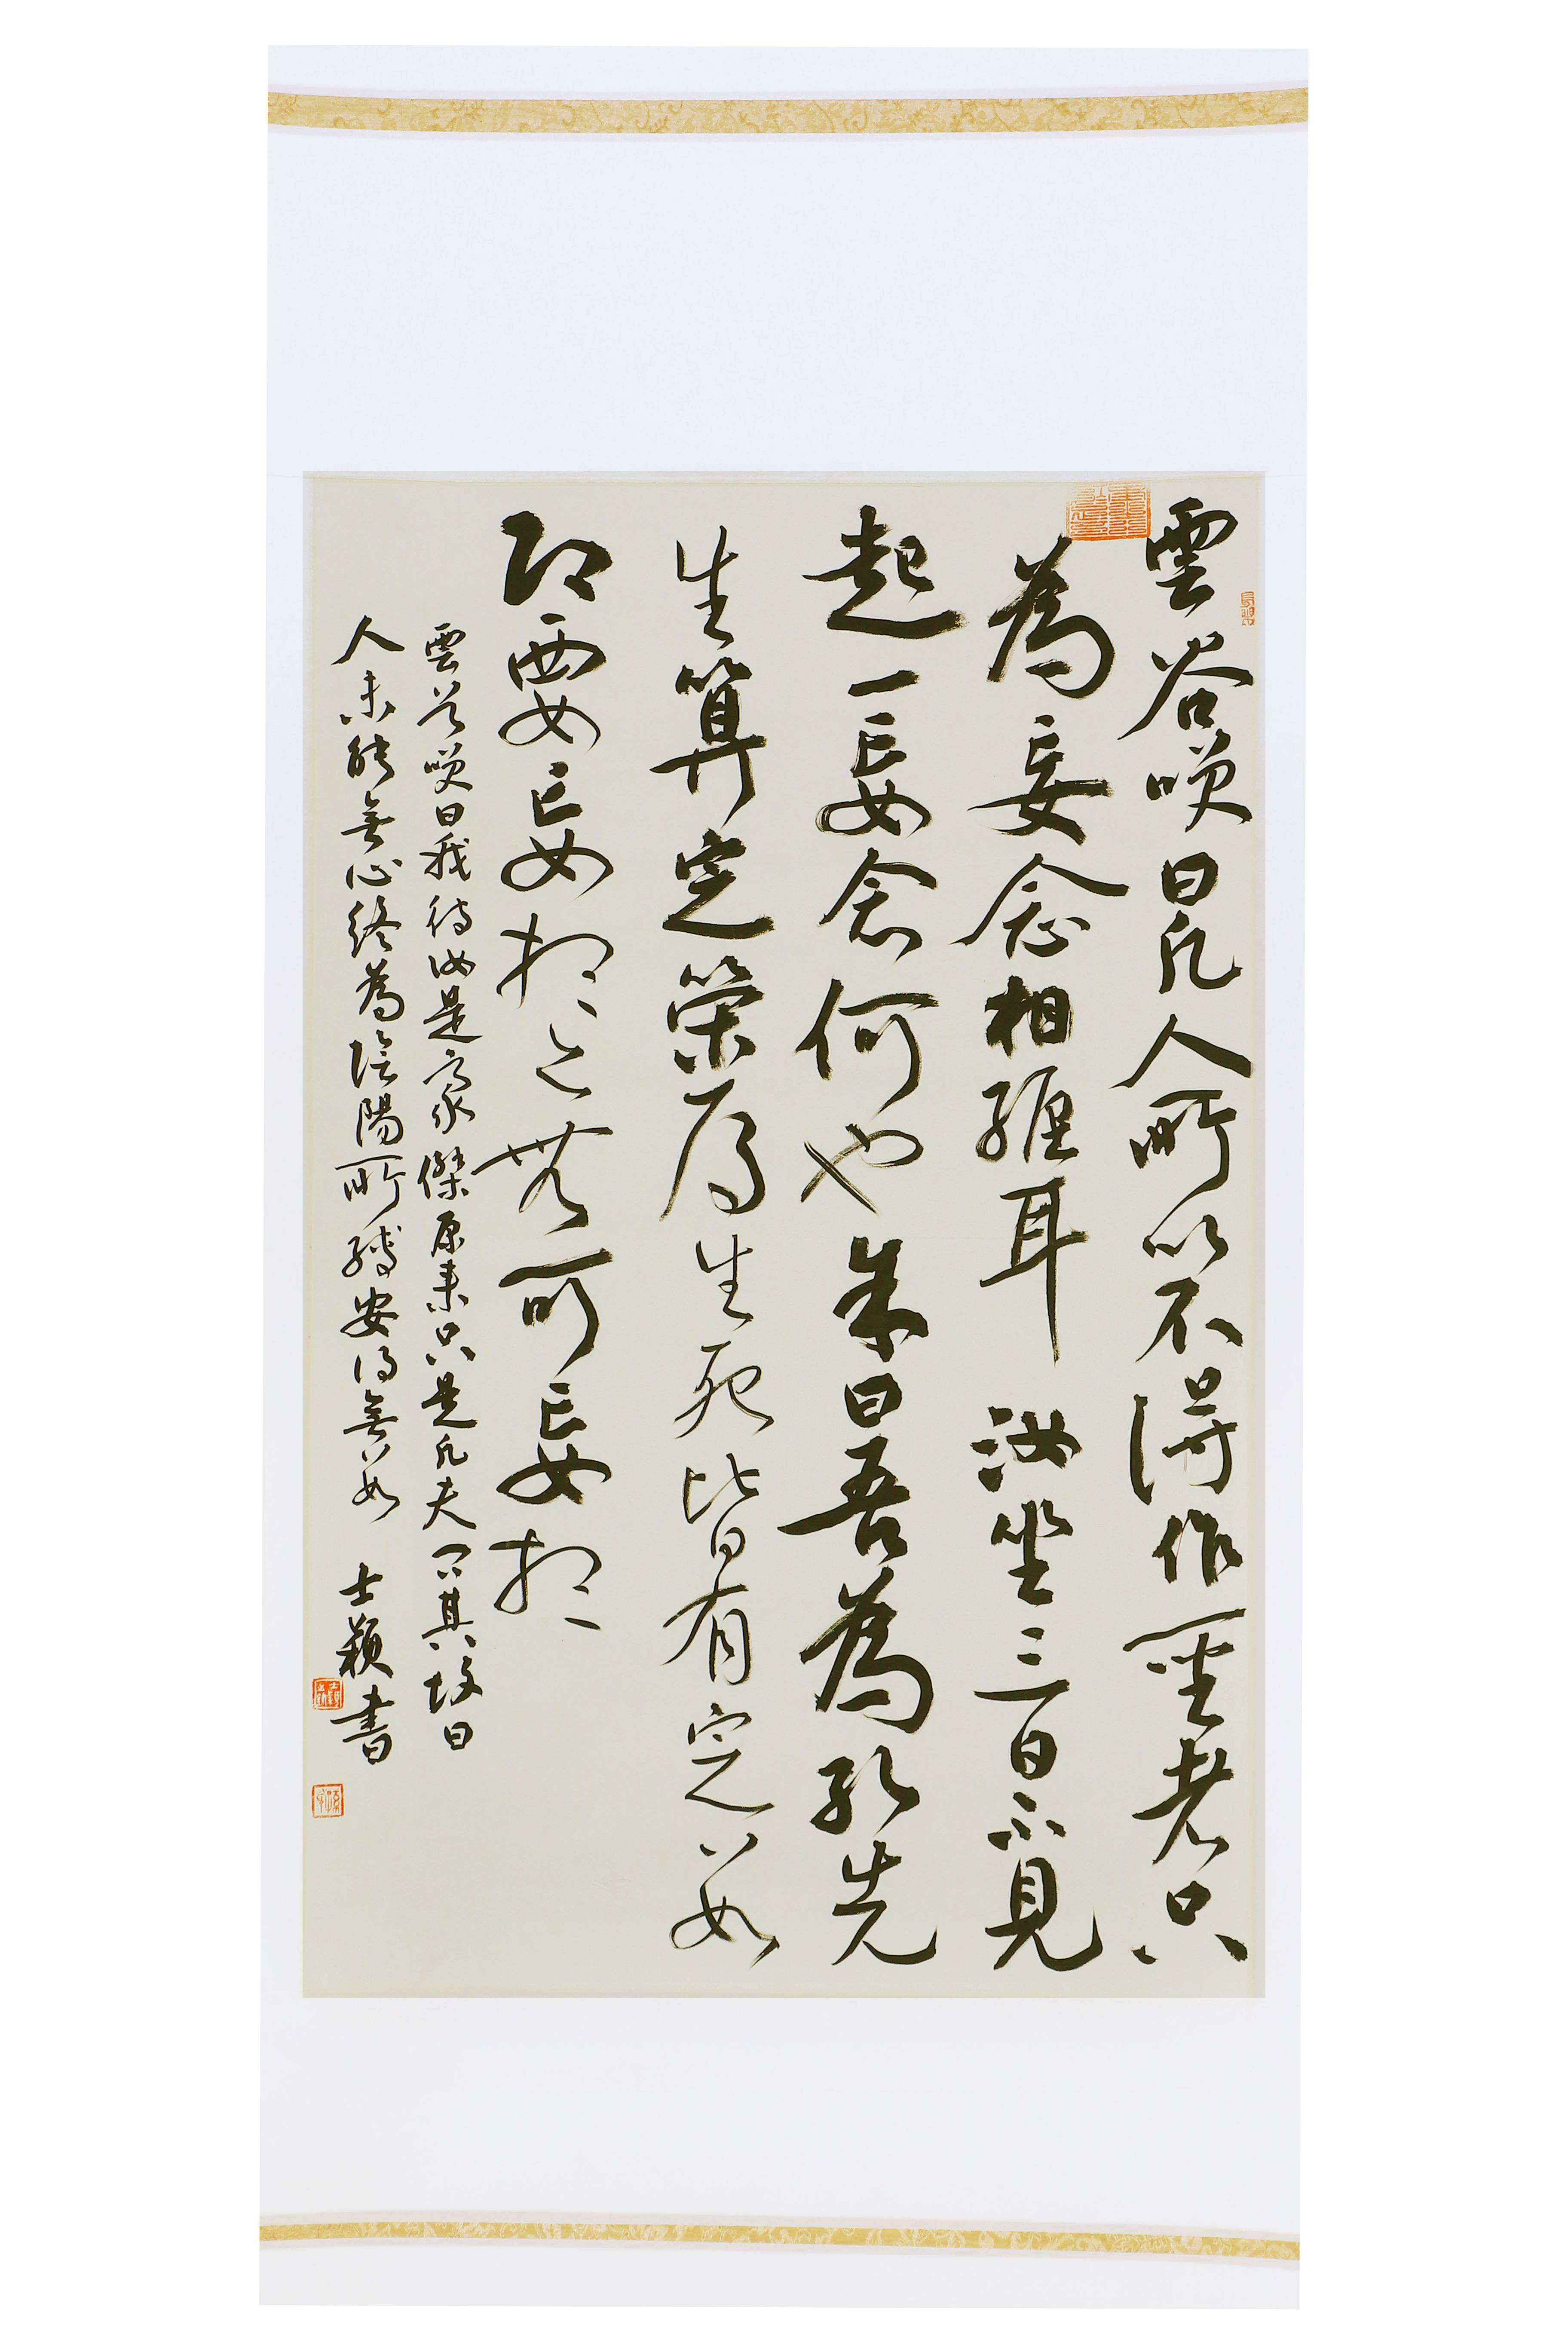 雲谷咲曰凡人所以不得作聖者只
為妄念相纏耳 汝坐三日不見
起一妄念何也余曰吾為孔先
生算定榮辱生死皆有定數
即要妄想亦無可妄想
雲谷咲曰我待汝是豪傑原來只是凡夫問其故曰
人未能無心終為陰陽所縛安得無數 士穎書